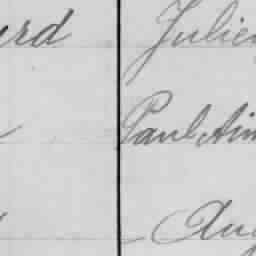 urd Julien
Paul Aim
Aug